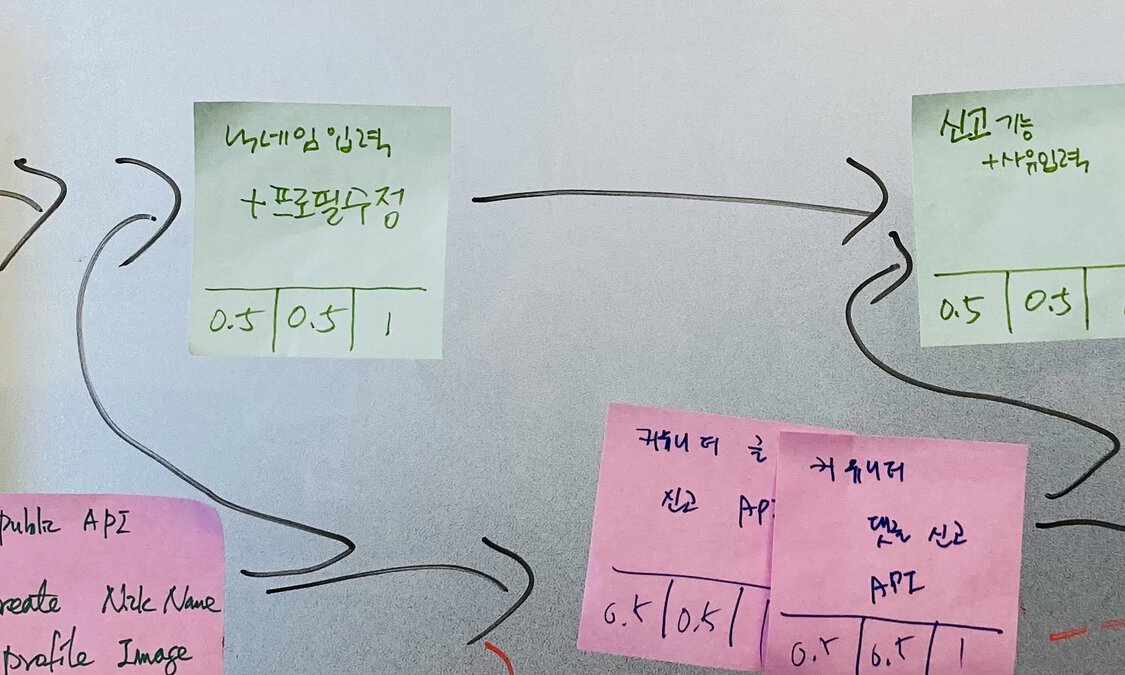 닉네임 입력
+프로필수정
0.5 0.5 1
신고 기능
+사유입력
0.5 0.5
public API
create NickName
profile Image
커뮤니터 글
신고 API
0.5 0.5
커뮤니터
댓글 신고
API
0.5 0.5 1